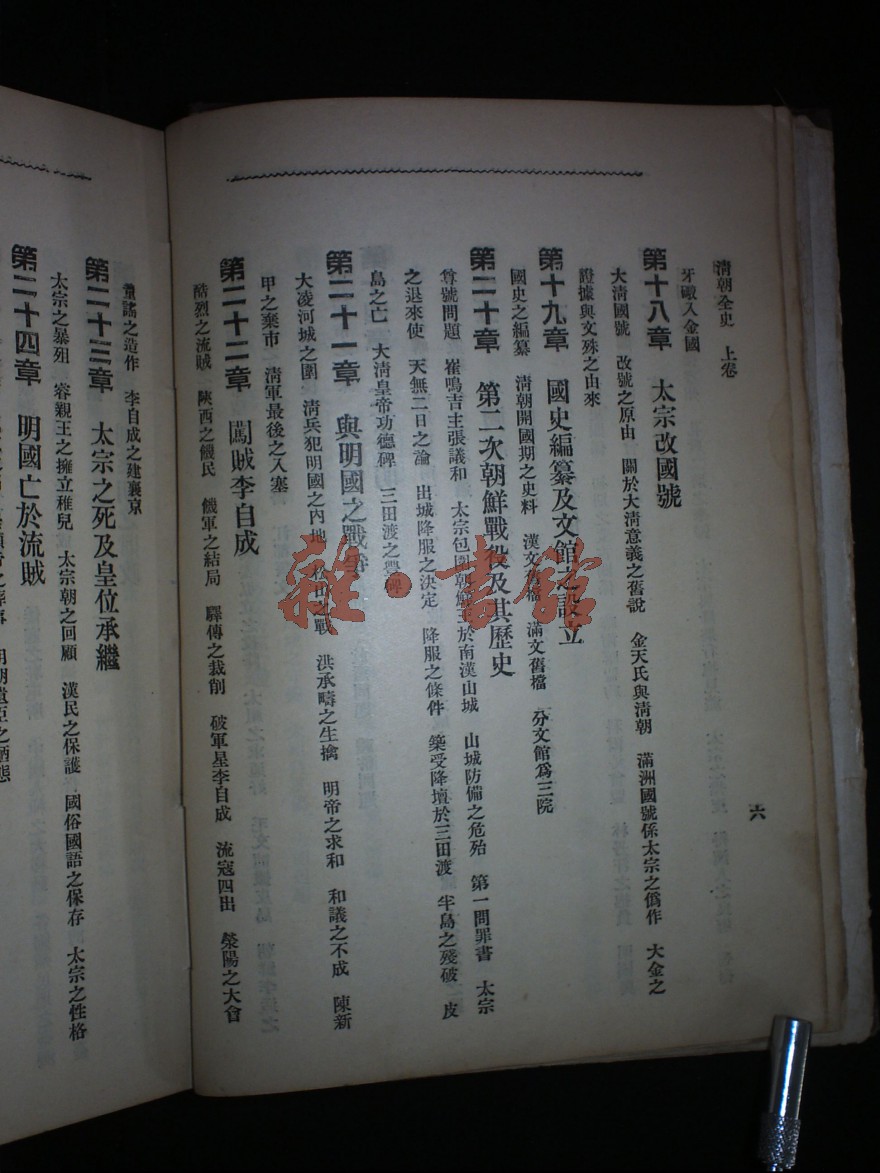 清朝全史 上卷
六
牙礮入金國
第十八章 太宗改國號
大淸國號 改號之原由 關於大淸意義之舊說 金天氏與淸朝 滿洲國號係太宗之僞作 大金之
證據與文殊之由來
第十九章 國史編纂及文館之設立
國史之編纂 淸朝開國期之史料 漢文舊檔 滿文舊檔 分文館爲三院
第二十章 第二次朝鮮戰役及其歷史
尊號問題 崔鳴吉主張議和 太宗包圍朝鮮王於南漢山城 山城防備之危殆 第一問罪書 太宗
之退來使 天無二日之論 出城降服之決定 降服之條件 築受降壇於三田渡 半島之殘破 皮
島之亡 大淸皇帝功德碑 三田渡之
第二十一章 與明國之戰
大凌河城之圍 淸兵犯明國之內地 松山之戰 洪承疇之生擒 明帝之求和 和議之不成 陳新
甲之棄市 淸軍最後之入塞
第二十二章 闖賊李自成
酷烈之流賊 陝西之饑民 饑軍之結局 驛傳之裁削 破軍星李自成 流寇四出 滎陽之大會
童謠之造作 李自成之建襄京
第二十三章 太宗之死及皇位承繼
太宗之暴殂 睿親王之擁立稚兒 太宗朝之回顧 漢民之保護 國俗國語之保存 太宗之性格
第二十四章 明國亡於流賊
雜·書館